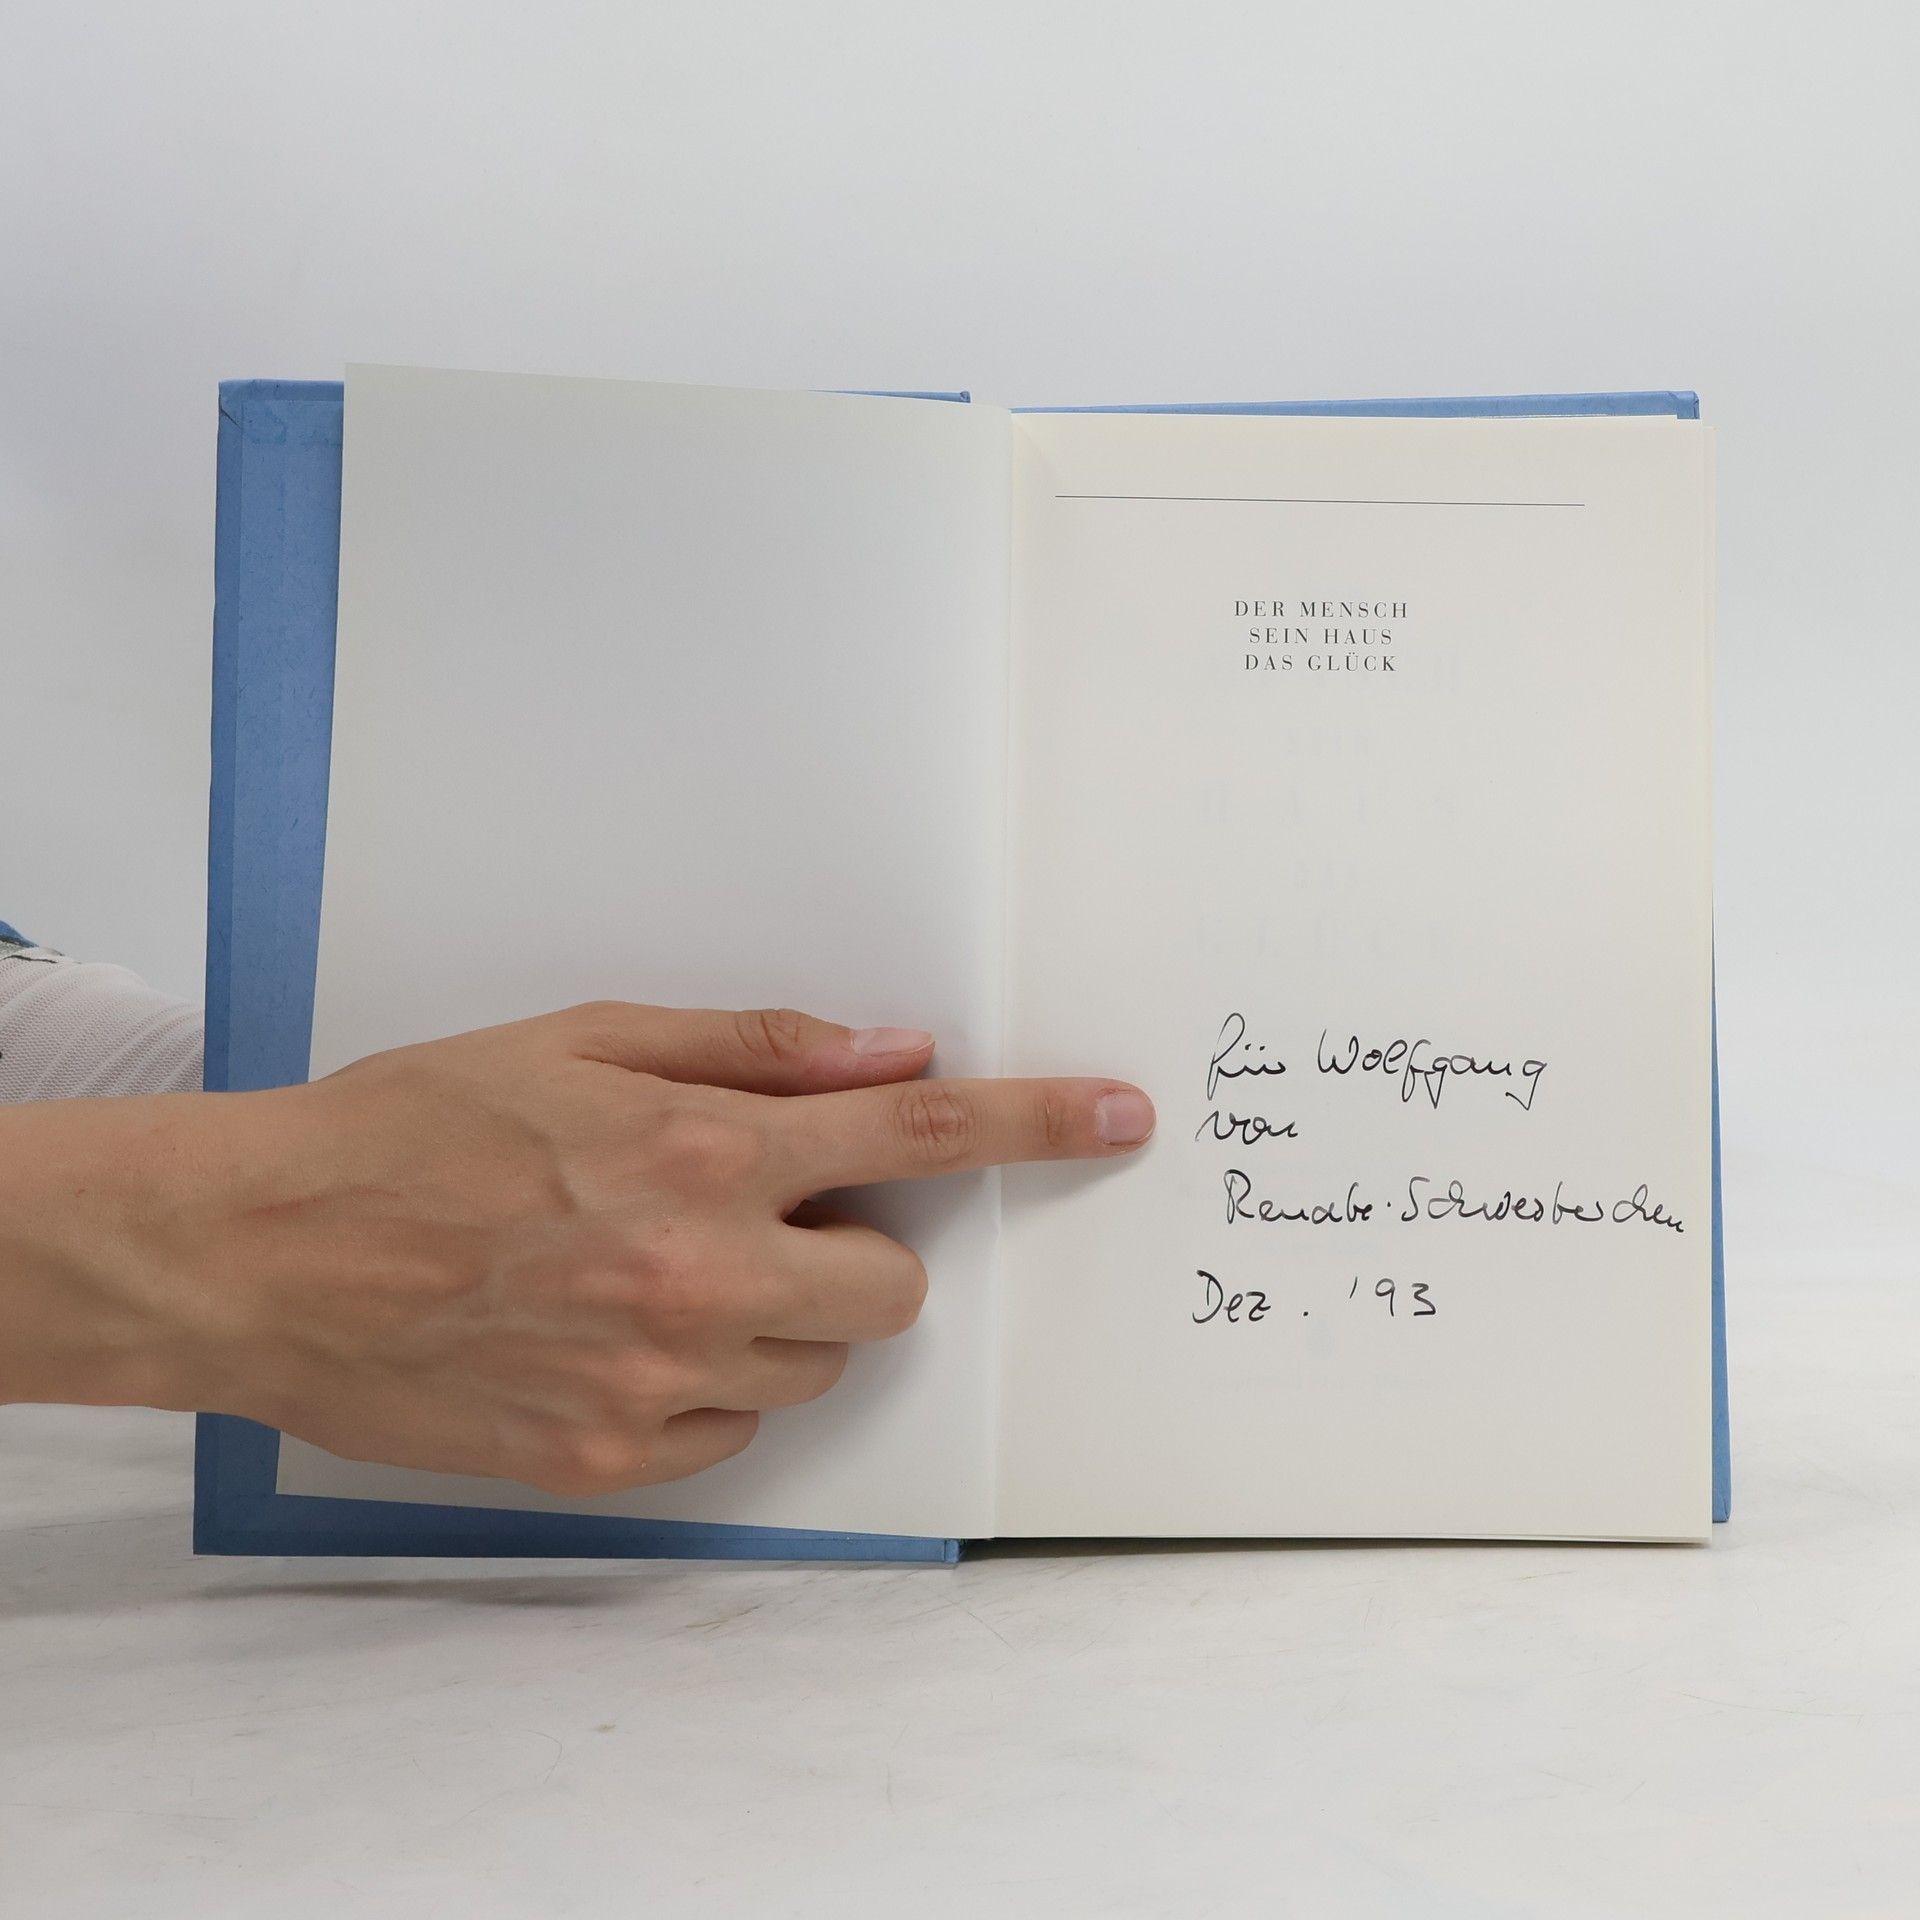 DER MENSCH
SEIN HAUS
DAS GLÜCK
für Wolfgang
von
Renate-Schwesterchen
Dez. '93